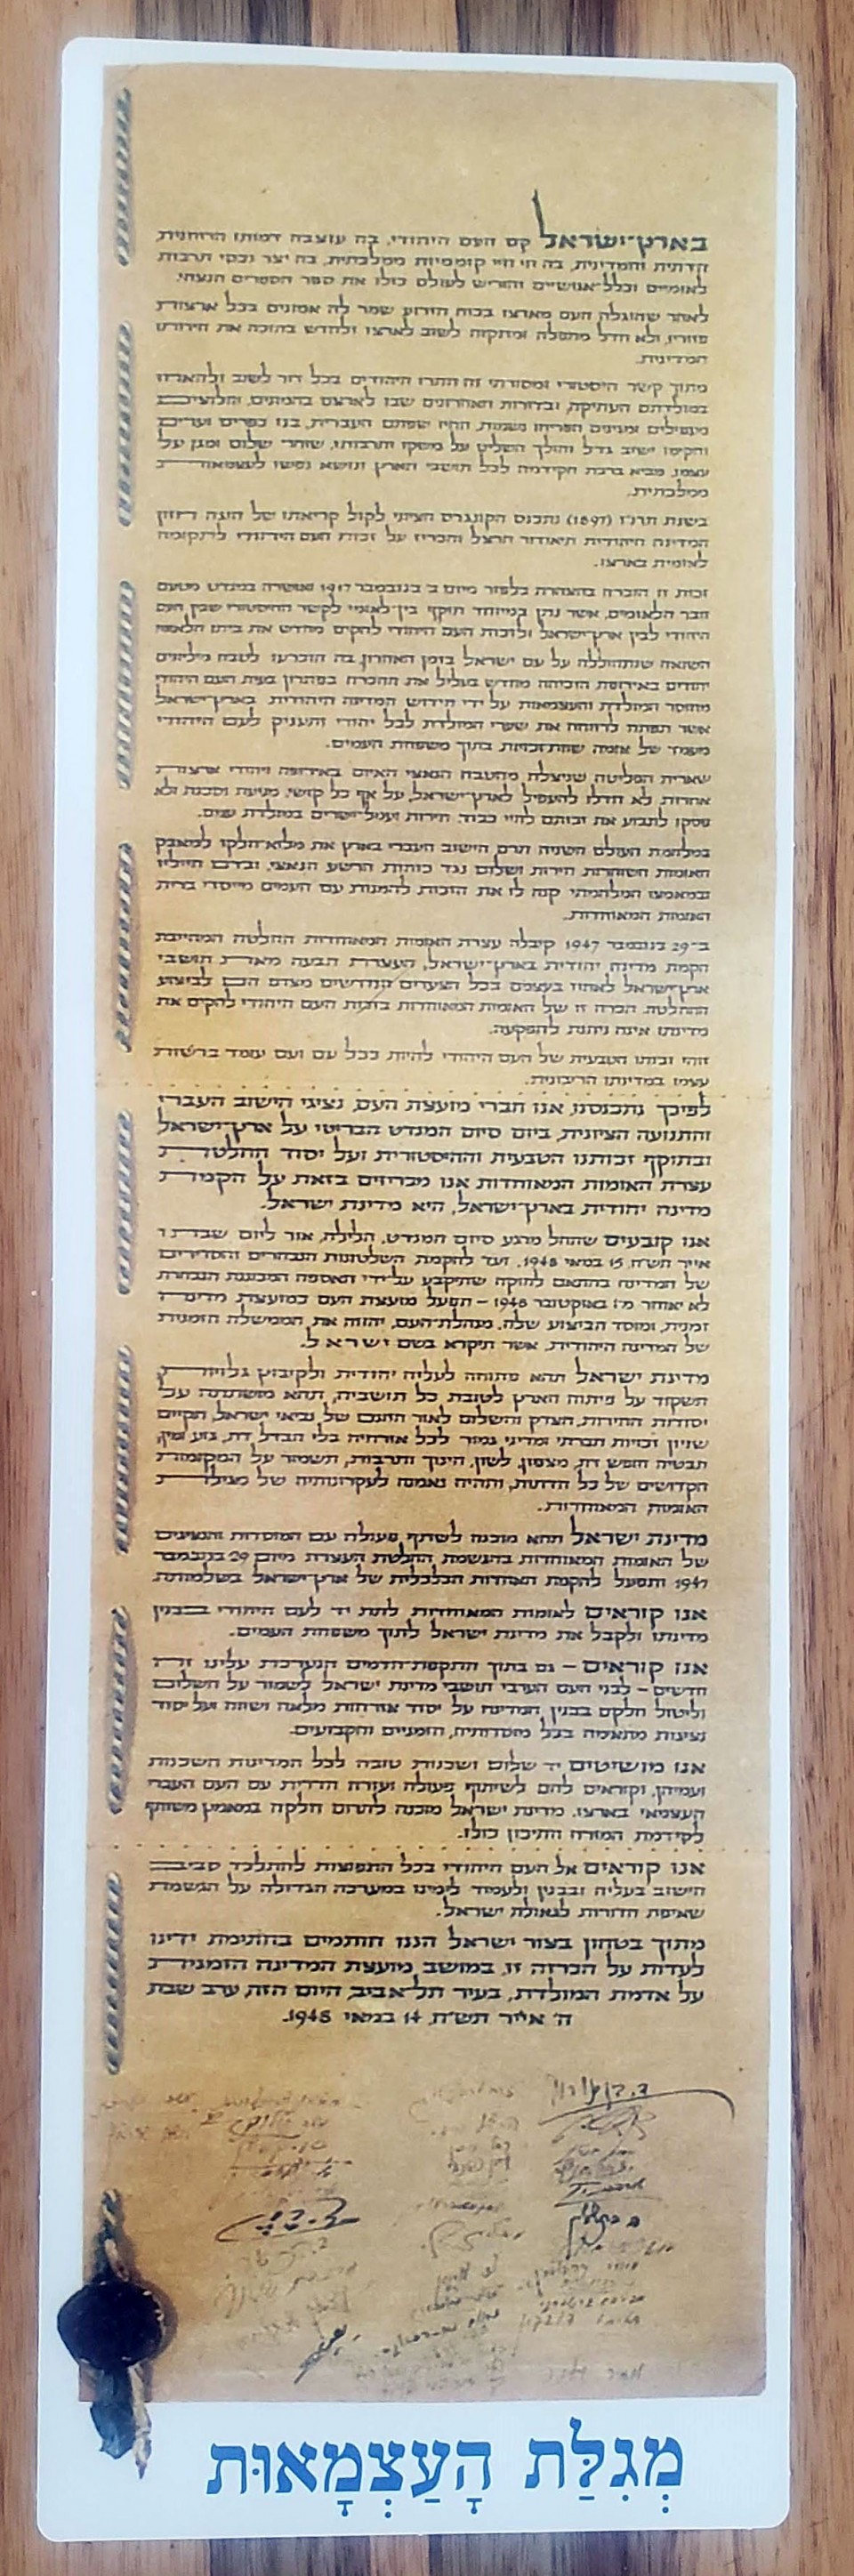 בארץ־ישראל קם העם היהודי, בה עוצבה דמותו הרוחנית,
הדתית והמדינית, בה חי חיי קוממיות ממלכתית, בה יצר נכסי תרבות
לאומיים וכלל־אנושיים והוריש לעולם כולו את ספר הספרים הנצחי.
לאחר שהוגלה העם מארצו בכוח הזרוע שמר לה אמונים בכל ארצות
פזוריו, ולא חדל מתפלה ומתקוה לשוב לארצו ולחדש בתוכה את חירותו
המדינית.
מתוך קשר היסטורי ומסורתי זה חתרו היהודים בכל דור לשוב ולהאחז
במולדתם העתיקה, ובדורות האחרונים שבו לארצם בהמונים, וחלוצים
מעפילים ומגינים הפריחו נשמות, החיו שפתם העברית, בנו כפרים וערים
והקימו ישוב גדל והולך השליט על משקו ותרבותו, שוחר שלום ומגן על
עצמו, מביא ברכת הקידמה לכל תושבי הארץ ונושא נפשו לעצמאות
ממלכתית.
בשנת תרנ״ז (1897) נתכנס הקונגרס הציוני לקול קריאתו של הוגה חזון
המדינה היהודית תיאודור הרצל והכריז על זכות העם היהודי לתקומה
לאומית בארצו.
זכות זו הוכרה בהצהרת בלפור מיום ב׳ בנובמבר 1917 ואושרה במנדט מטעם
חבר הלאומים, אשר נתן במיוחד תוקף בין־לאומי לקשר ההיסטורי שבין העם
היהודי לבין ארץ־ישראל ולזכות העם היהודי להקים מחדש את ביתו הלאומי
השואה שנתחוללה על עם ישראל בזמן האחרון, בה הוכרעו לטבח מיליונים
יהודים באירופה, הוכיחה מחדש בעליל את ההכרח בפתרון בעית העם היהודי
מחוסר המולדת והעצמאות על ידי חידוש המדינה היהודית בארץ־ישראל,
אשר תפתח לרווחה את שערי המולדת לכל יהודי ותעניק לעם היהודי
מעמד של אומה שוות־זכויות בתוך משפחת העמים.
שארית הפליטה שניצלה מהטבח הנאצי האיום באירופה ויהודי ארצות
אחרות לא חדלו להעפיל לארץ־ישראל, על אף כל קושי, מניעה וסכנה ולא
פסקו לתבוע את זכותם לחיי כבוד, חירות ועמל־ישרים במולדת עמם.
במלחמת העולם השניה תרם הישוב העברי בארץ את מלוא־חלקו למאבק
האומות השוחרות חירות ושלום נגד כוחות הרשע הנאצי, ובדם חייליו
ובמאמצו המלחמתי קנה לו את הזכות להמנות עם העמים מייסדי ברית
האומות המאוחדות.
ב־29 בנובמבר 1947 קיבלה עצרת האומות המאוחדות החלטה המחייבת
הקמת מדינה יהודית בארץ־ישראל, העצרת תבעה מאת תושבי
ארץ־ישראל לאחוז בעצמם בכל הצעדים הנדרשים מצדם הם לביצוע
ההחלטה. הכרה זו של האומות המאוחדות בזכות העם היהודי להקים את
מדינתו אינה ניתנת להפקעה.
זוהי זכותו הטבעית של העם היהודי להיות ככל עם ועם עומד ברשות
עצמו במדינתו הריבונית.
לפיכך נתכנסנו, אנו חברי מועצת העם, נציגי הישוב העברי
והתנועה הציונית, ביום סיום המנדט הבריטי על ארץ־ישראל,
ובתוקף זכותנו הטבעית וההיסטורית ועל יסוד החלטת
עצרת האומות המאוחדות אנו מכריזים בזאת על הקמת
מדינה יהודית בארץ־ישראל, היא מדינת ישראל.
אנו קובעים שהחל מרגע סיום המנדט, הלילה, אור ליום שבת ו׳
אייר תש״ח 15 במאי 1948, ועד להקמת השלטונות הנבחרים והסדירים
של המדינה בהתאם לחוקה שתיקבע על־ידי האספה המכוננת הנבחרת
לא יאוחר מ־1 באוקטובר 1948 – תפעל מועצת העם כמועצת מדינה
זמנית, ומוסד הביצוע שלה, מנהלת־העם, יהווה את הממשלה הזמנית
של המדינה היהודית, אשר תיקרא בשם ישראל.
מדינת ישראל תהא פתוחה לעליה יהודית ולקיבוץ גלויות,
תשקוד על פיתוח הארץ לטובת כל תושביה, תהא מושתתה על
יסודות החירות, הצדק והשלום לאור חזונם של נביאי ישראל, תקיים
שויון זכויות חברתי ומדיני גמור לכל אזרחיה בלי הבדל דת, גזע ומין,
תבטיח חופש דת, מצפון, לשון, חינוך ותרבות, תשמור על המקומות
הקדושים של כל הדתות, ותהיה נאמנה לעקרונותיה של מגילת
האומות המאוחדות.
מדינת ישראל תהא מוכנה לשתף פעולה עם המוסדות והנציגים
של האומות המאוחדות בהגשמת החלטת העצרת מיום 29 בנובמבר
1947 ותפעל להקמת האחדות הכלכלית של ארץ־ישראל בשלמותה.
אנו קוראים לאומות המאוחדות לתת יד לעם היהודי בבנין
מדינתו ולקבל את מדינת ישראל לתוך משפחת העמים.
אנו קוראים – גם בתוך התקפת־הדמים הנערכת עלינו זה
חדשים – לבני העם הערבי תושבי מדינת ישראל לשמור על השלום
וליטול חלקם בבנין המדינה על יסוד אזרחות מלאה ושווה ועל יסוד
נציגות מתאימה בכל מוסדותיה, הזמניים והקבועים.
אנו מושיטים יד שלום ושכנות טובה לכל המדינות השכנות
ועמיהן, וקוראים להם לשיתוף פעולה ועזרה הדדית עם העם העברי
העצמאי בארצו. מדינת ישראל מוכנה לתרום חלקה במאמץ משותף
לקידמת המזרח התיכון כולו.
אנו קוראים אל העם היהודי בכל התפוצות להתלכד סביב
הישוב בעליה ובבנין ולעמוד לימינו במערכה הגדולה על הגשמת
שאיפת הדורות לגאולת ישראל.
מתוך בטחון בצור ישראל הננו חותמים בחתימת ידינו
לעדות על הכרזה זו, במושב מועצת המדינה הזמנית,
על אדמת המולדת, בעיר תל־אביב, היום הזה, ערב שבת
ה׳ אייר תש״ח, 14 במאי 1948.
ד. בן גוריון
מְגִלַּת הָעַצְמָאוּת